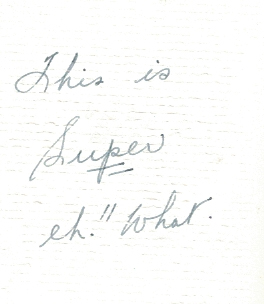 This is
Super
eh." What.